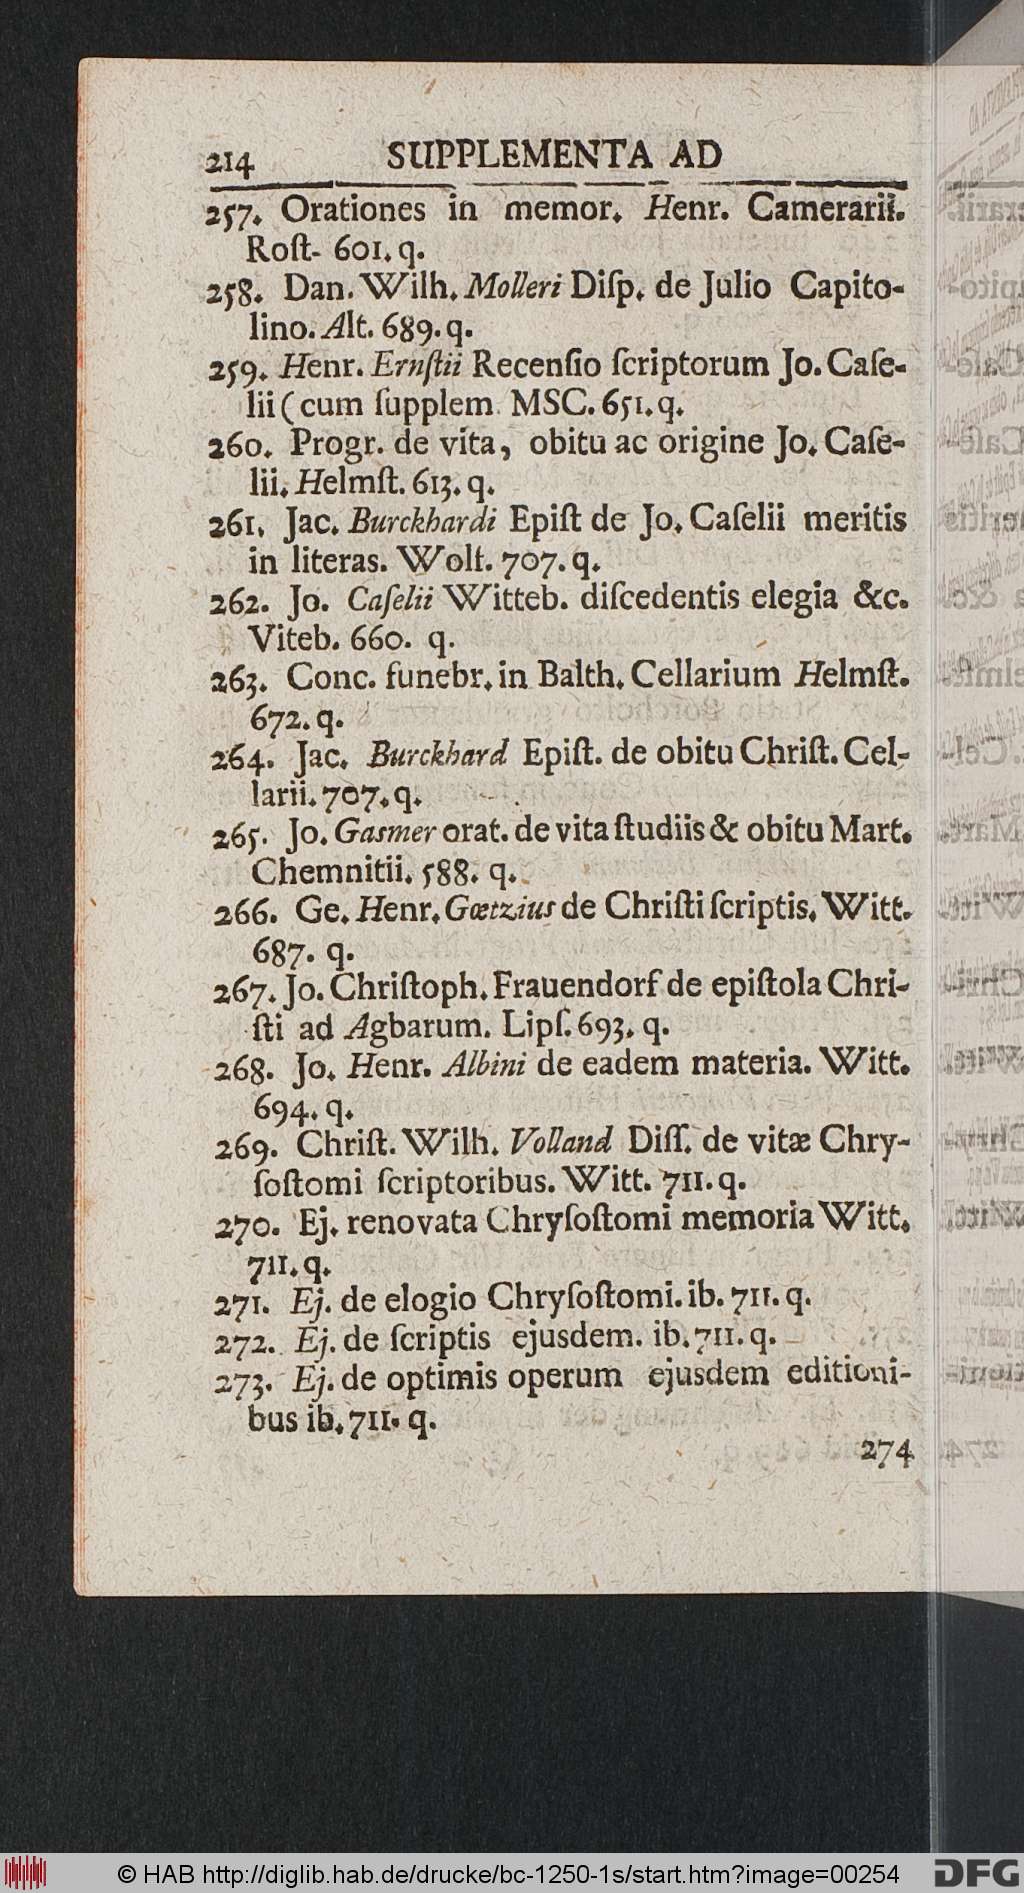 214 SUPPLEMENTA AD
257. Orationes in memor. Henr. Camerarii.
Roſt- 601. q.
258. Dan. Wilh. Molleri Diſp. de Julio Capito-
lino. Alt. 689. q.
259. Henr. Ernſtii Recenſio ſcriptorum Jo. Caſe-
lii (cum ſupplem. MSC. 651. q.
260. Progr. de vita, obitu ac origine Jo. Caſe-
lii. Helmſt. 613. q.
261. Jac. Burckhardi Epiſt de Jo. Caſelii meritis
in literas. Wolf. 707. q.
262. Jo. Caſelii Witteb. diſcedentis elegia &c.
Viteb. 660. q.
263. Conc. funebr. in Balth. Cellarium Helmſt.
672. q.
264. Jac. Burckhard Epiſt. de obitu Chriſt. Cel-
larii. 707. q.
265. Jo. Gasmer orat. de vita ſtudiis & obitu Mart.
Chemnitii. 588. q.
266. Ge. Henr. Gœtzius de Chriſti ſcriptis. Witt.
687. q.
267. Jo. Chriſtoph. Frauendorf de epiſtola Chri-
ſti ad Agbarum. Lipſ. 693. q.
268. Jo. Henr. Albini de eadem materia. Witt.
694. q.
269. Chriſt. Wilh. Volland Diſſ. de vitæ Chry-
ſoſtomi ſcriptoribus. Witt. 711. q.
270. Ej. renovata Chryſoſtomi memoria Witt.
711. q.
271. Ej. de elogio Chryſoſtomi. ib. 711. q.
272. Ej. de ſcriptis ejusdem. ib. 711. q.
273. Ej. de optimis operum ejusdem editioni-
bus ib. 711. q.
274
© HAB http://diglib.hab.de/drucke/bc-1250-1s/start.htm?image=00254
DFG